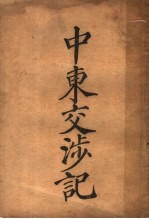 中東交涉記